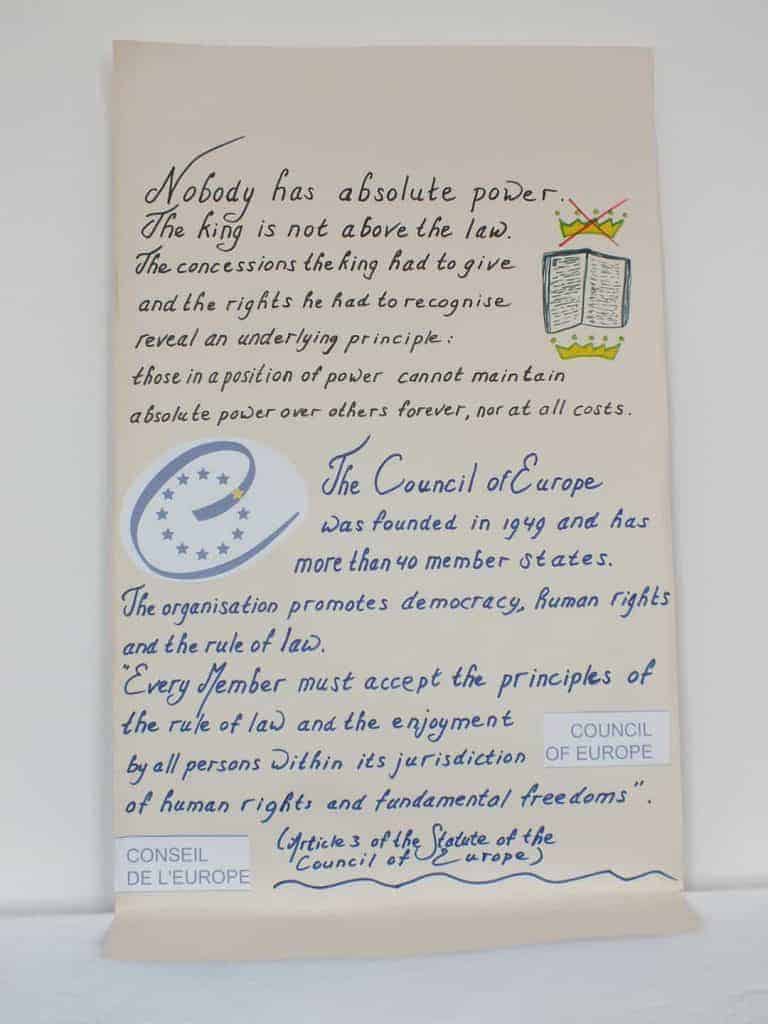 Nobody has absolute power.
The king is not above the law.
The concessions the king had to give
and the rights he had to recognise
reveal an underlying principle:
those in a position of power cannot maintain
absolute power over others forever, nor at all costs.
The Council of Europe
was founded in 1949 and has
more than 40 member states.
The organisation promotes democracy, human rights
and the rule of law.
"Every Member must accept the principles of
the rule of law and the enjoyment
by all persons within its jurisdiction
of human rights and fundamental freedoms".
COUNCIL
OF EUROPE
(Article 3 of the Statute of the
Council of Europe)
CONSEIL
DE L'EUROPE